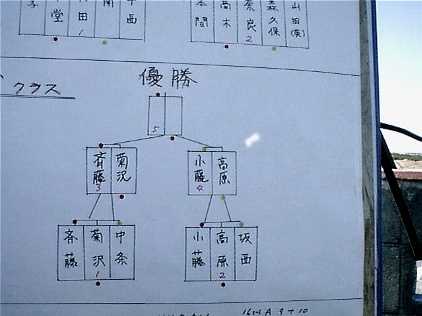 堂
中西
本間
高木
奈良2
森久保
山田(廣)
クラス
優勝
5
斉藤3
菊沢
小藤4
高原
斉藤
菊沢1
中条
小藤
高原2
坂西